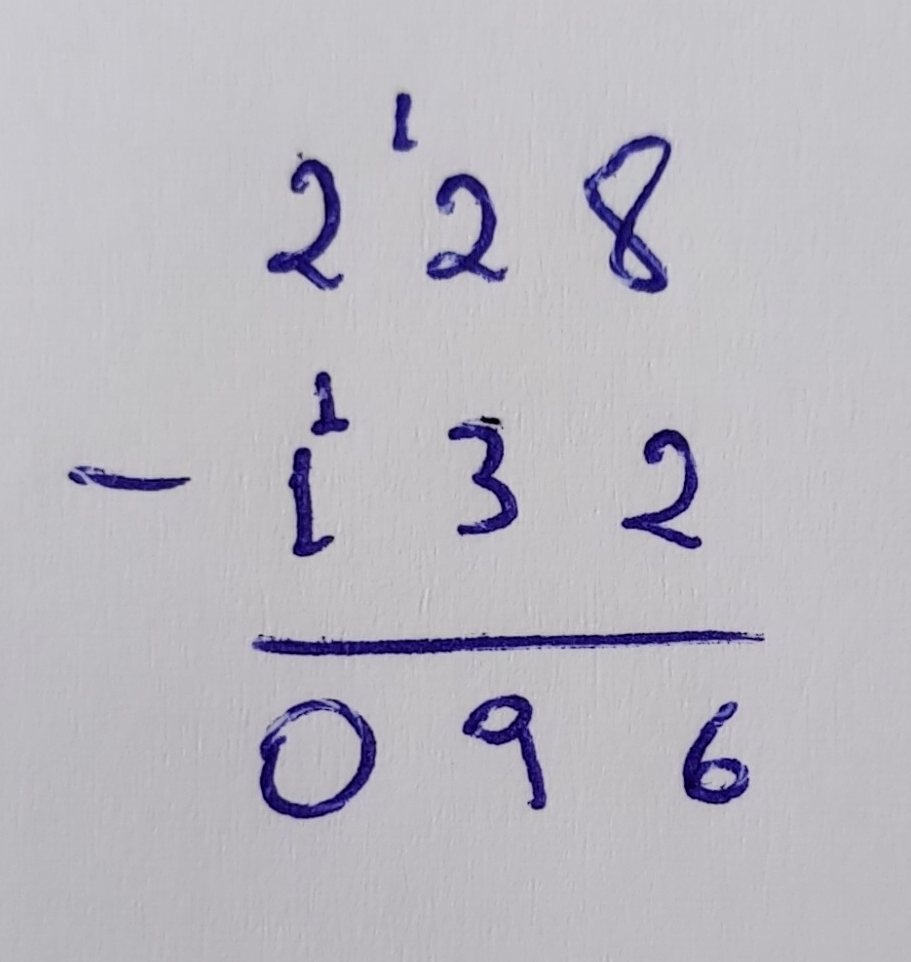 1
2 2 8
1
- 1 3 2
0 9 6